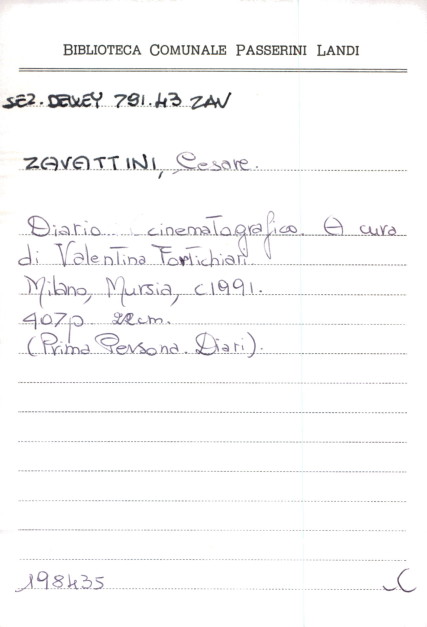 BIBLIOTECA COMUNALE PASSERINI LANDI
SEZ. DEWEY 791.43 ZAV
ZAVATTINI, Cesare.
Diario cinematografico. A cura
di Valentina Fortichiari.
Milano, Mursia, c1991.
407p 22cm.
(Prima Persona. Diari).
198435